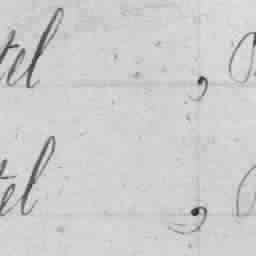 tel ,
tel ,